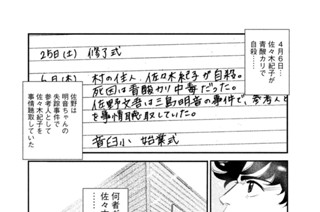 4月6日…
佐々木紀子が
青酸カリで
自殺…
25日(土) 修了式
6日(木) 村の住人、佐々木紀子が自殺。
死因は青酸カリ中毒だった。
佐野文吾は三島明音の事件で、参考人と
を事情聴取していた。
音臼小 始業式
佐野は
明音ちゃんの
失踪事件で
参考人として
佐々木紀子を
事情聴取していた
何者が
佐々木